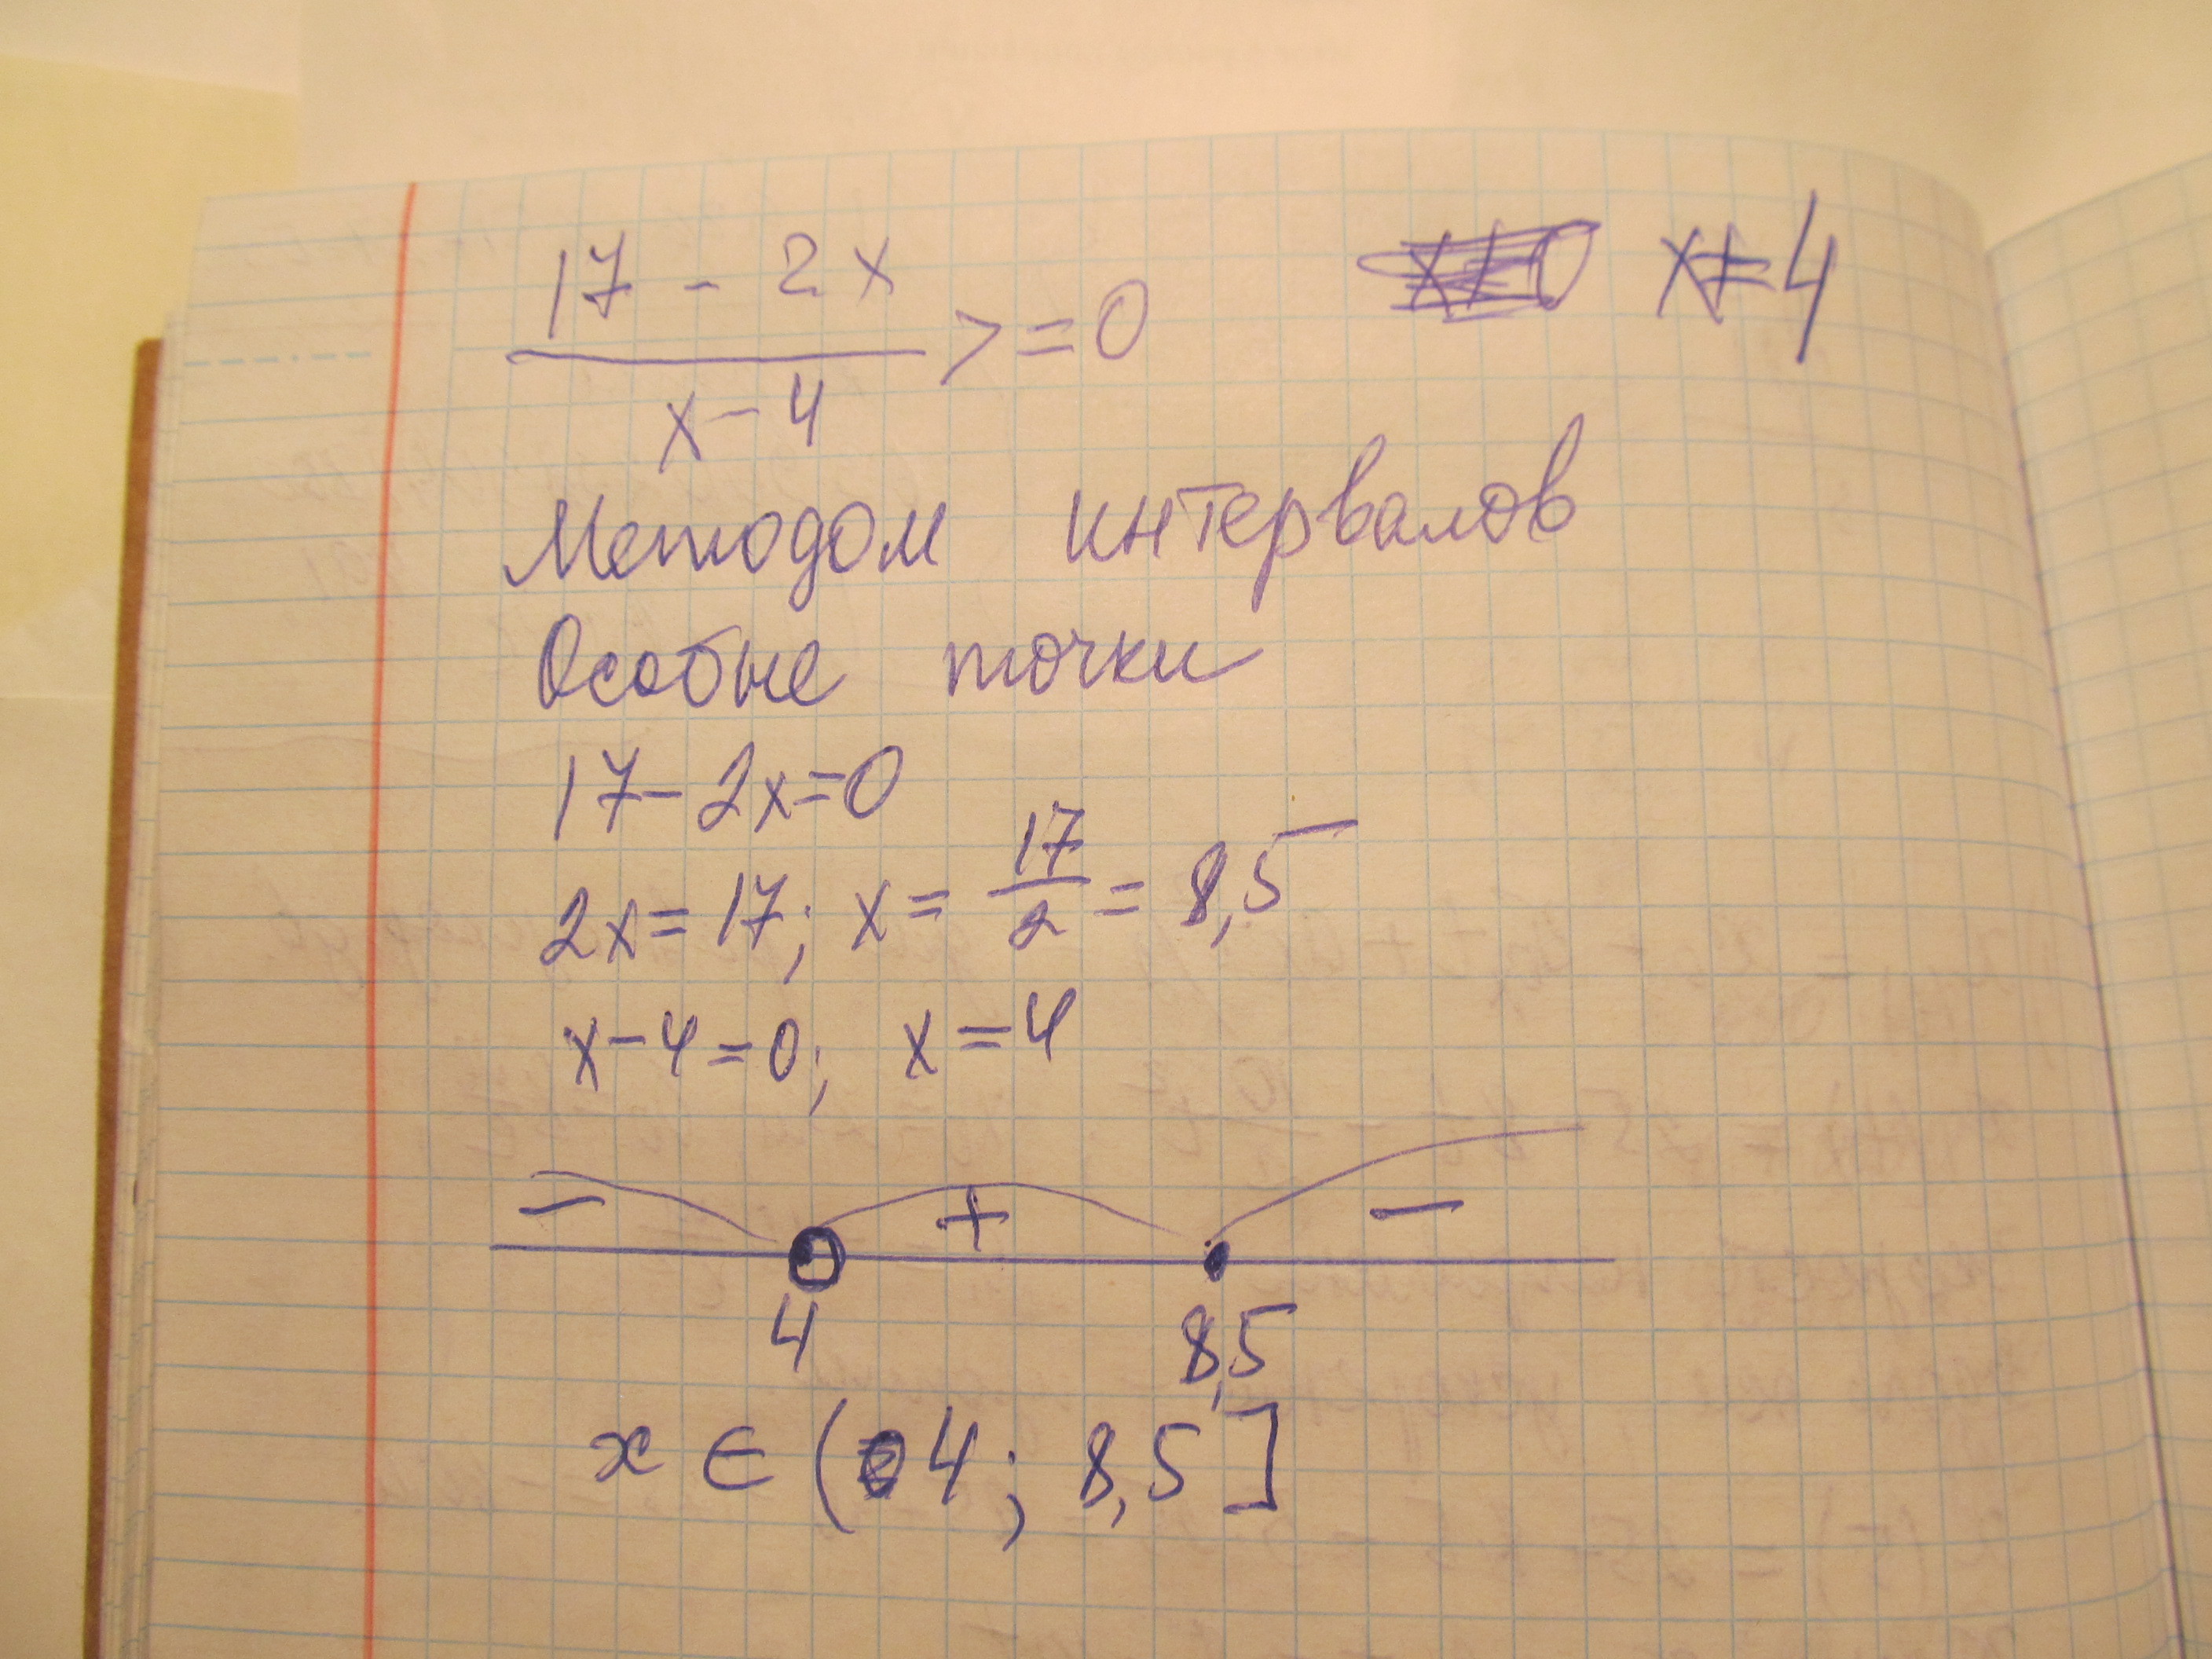 17 - 2x
x≠4
x - 4 >= 0
Методом интервалов
Особые точки
17 - 2x = 0
2x = 17; x = 17/2 = 8,5
x - 4 = 0; x = 4
- + -
4 8,5
x ∈ (4; 8,5]